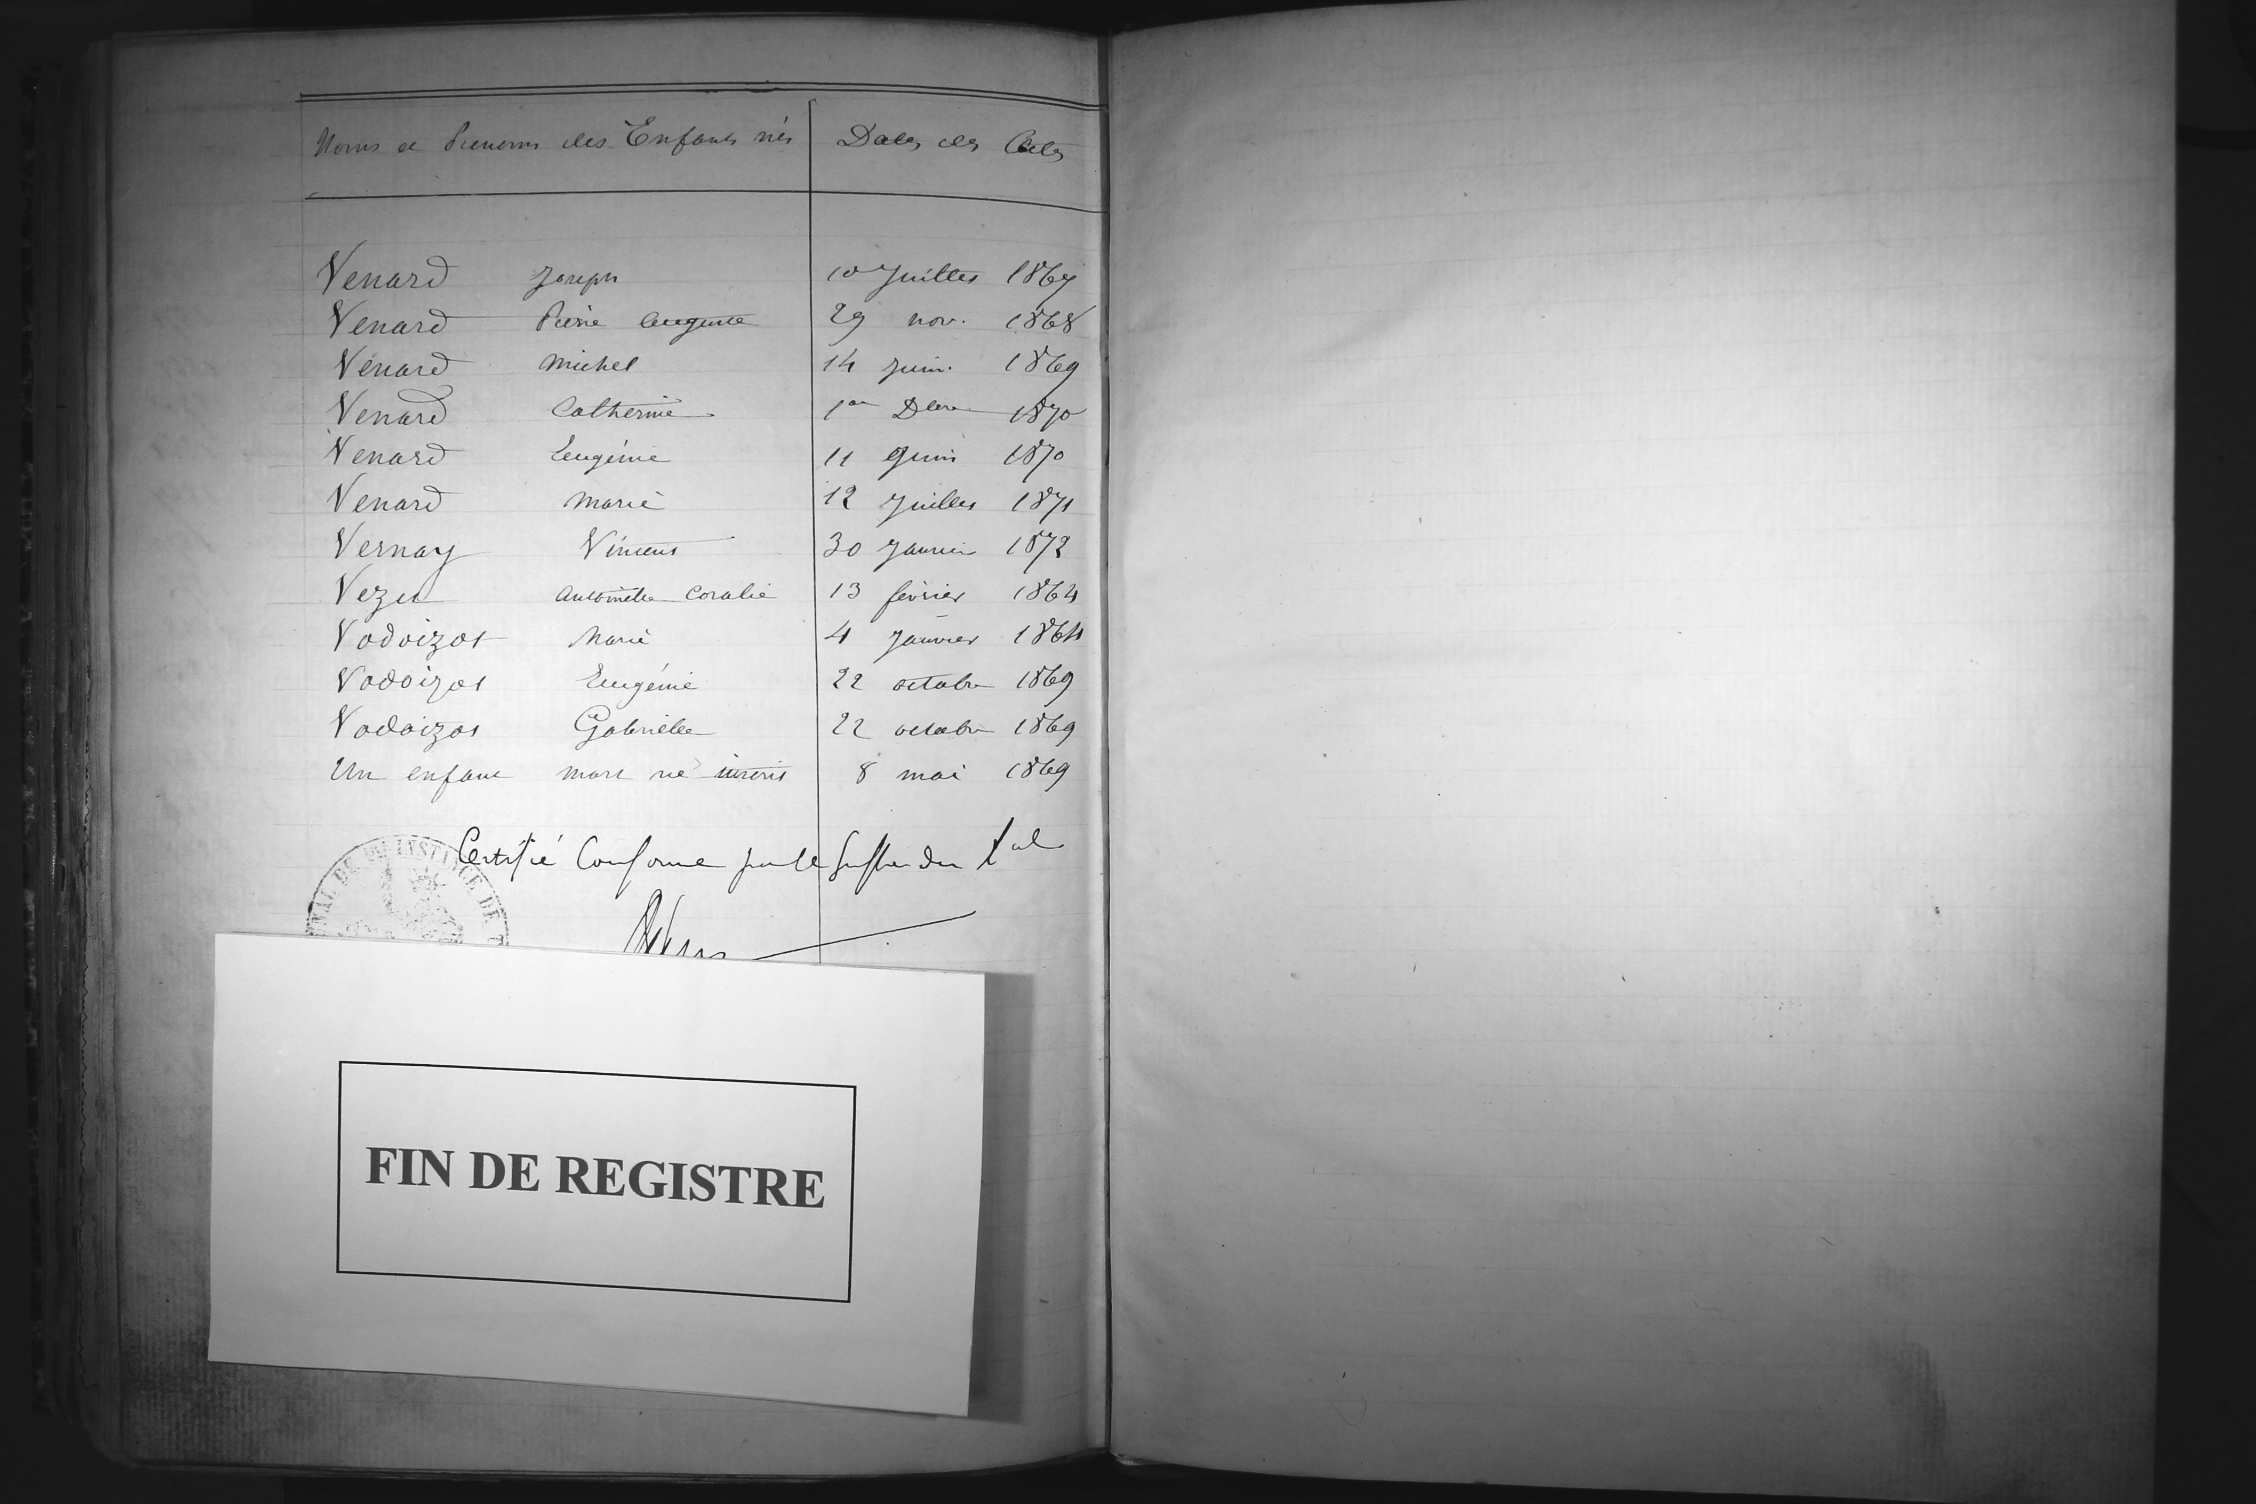 Noms et Prénoms des Enfants nés Dates des Actes
Venard Joseph 10 Juillet 1867
Venard Pierre Auguste 29 nov. 1868
Venard Michel 14 juin 1869
Venard Catherine 1er Xbre 1870
Venard Eugénie 11 Juin 1870
Venard Marie 12 Juillet 1871
Vernay Vincent 30 Janvier 1872
Vezu Antoinette Coralie 13 février 1864
Vodoizot Marie 4 Janvier 1864
Vodoizot Eugénie 22 octobre 1869
Vodoizot Gabrielle 22 octobre 1869
Un enfant mort né inscrit 8 mai 1869
Certifié Conforme par le Greffier du Tal
FIN DE REGISTRE